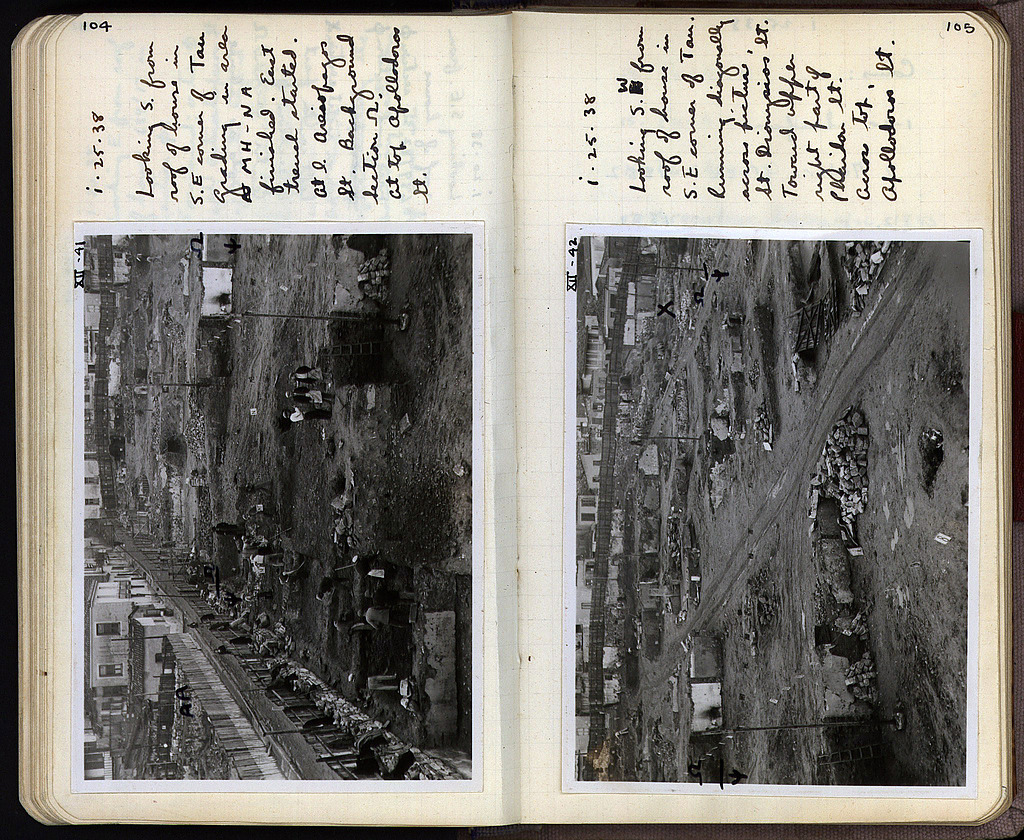 104
i·25·38
Looking S. from
roof of house in
S.E corner of Tau
Grading in area
MH-NA
finished. East
trench started.
At l. Areiopagos
St. Background
Section Ω,
at top Apollodoros
St.
XII-41
Ω
Ψ
105
i·25·38
Looking S.W from
roof of house in
S.E corner of Tau.
Running diagonally
across picture,
St. Dionysios St.
Toward upper
right part of
St.
Across top,
Apollodoros St.
XII-42
X
Ω
Ψ
Ω
Ψ